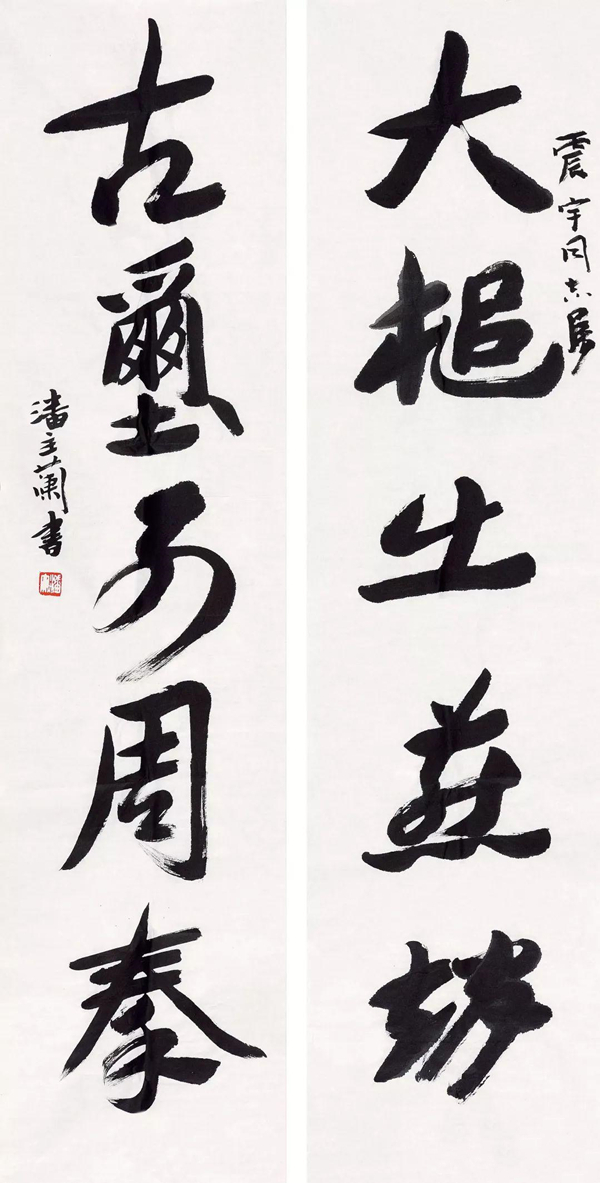 大槌出燕趙
震宇同志屬
古璽多周秦
潘主蘭書